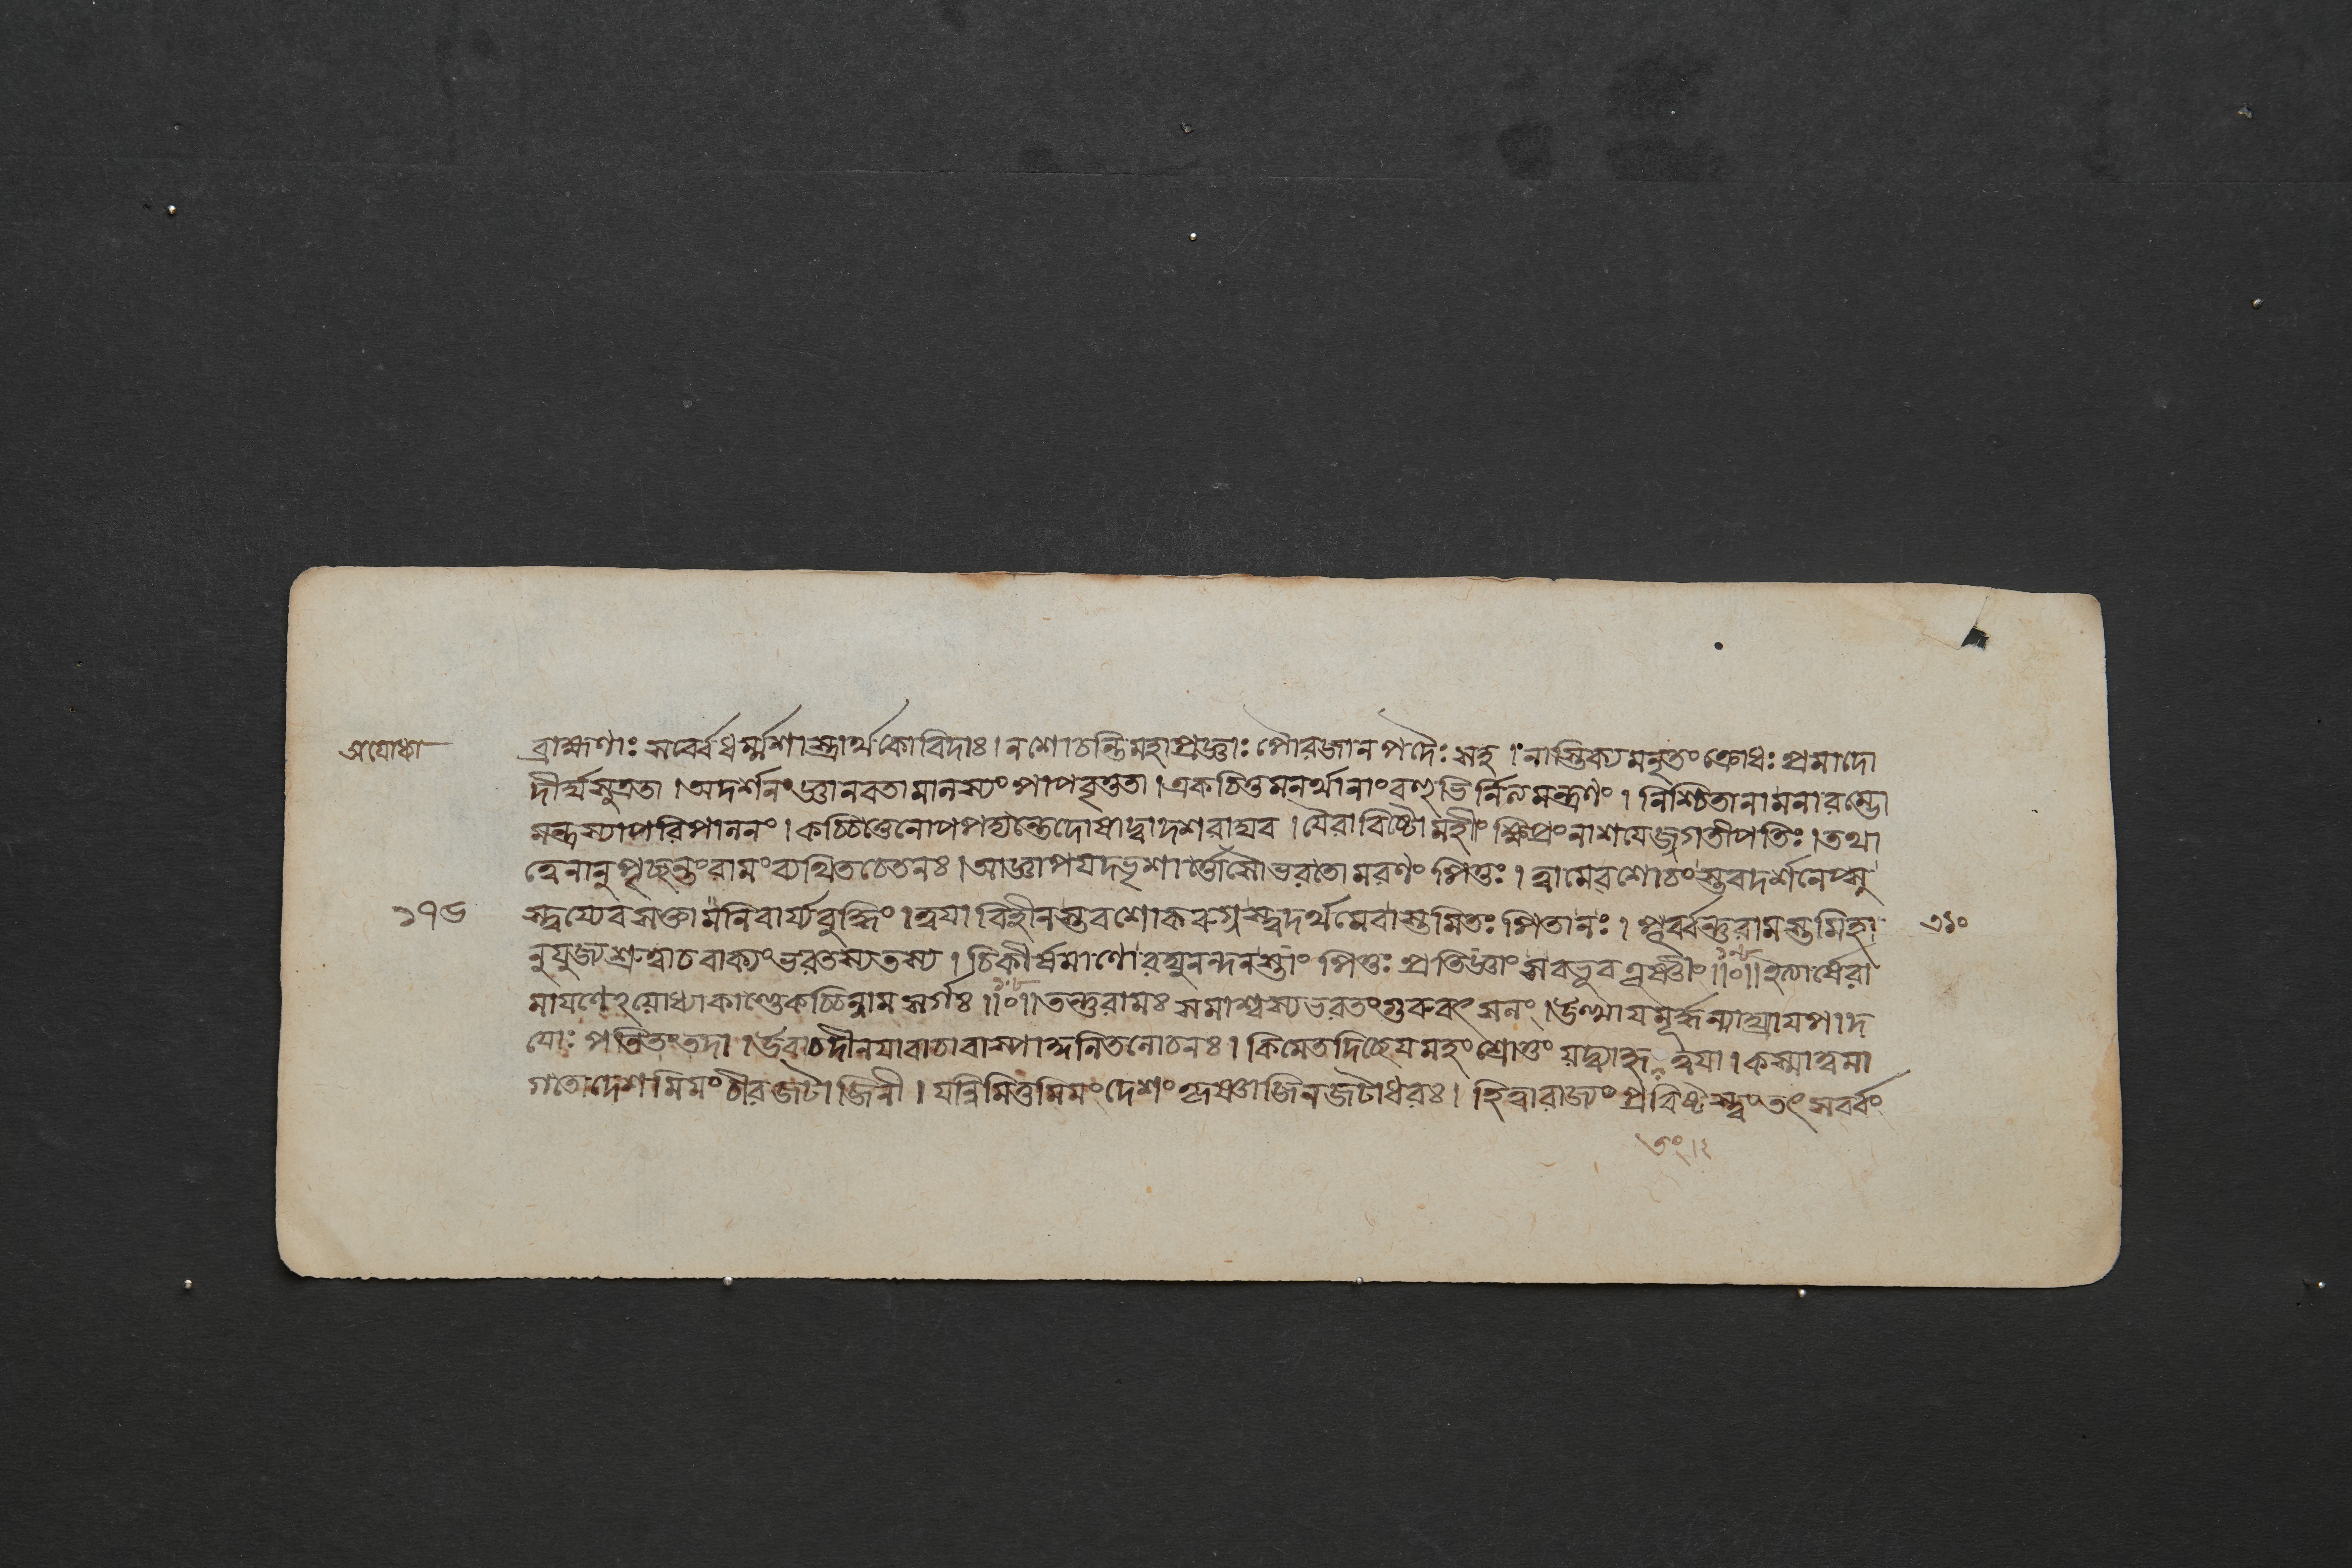 অযোধ্যা
ব্রাহ্মণাঃ সর্ব্বে ধর্ম্মশাস্ত্রার্থকোবিদাঃ । ন শোচন্তি মহাপ্রজ্ঞাঃ পৌরজানপদৈঃ সহ । নাস্তিক্যমনৃতং ক্রোধঃ প্রমাদো
দীর্ঘসূত্রতা । অদর্শনং জ্ঞানবতামালস্যং পাপবৃত্ততা । একচিত্তমনর্থানাং বহুভির্মন্ত্রণং । নিশ্চিতানামনারম্ভো
মন্ত্রস্যাপরিপালনং । কচ্চিত্তে নোপপদ্যন্তে দোষা দ্বাদশ রাঘব । যৈরাবিষ্টো মহীং ক্ষিপ্রং নাশযেজ্জগতীপতিঃ । তথা
ত্বেনানুপৃচ্ছন্তং রামং ব্যথিতচেতনঃ । আজ্ঞাপযদ্ভৃশার্ত্তোসৌ ভরতো মরণং পিতুঃ । ত্বামেব শোচংস্তব দর্শনেপ্সু
১৭৬
স্ত্বয্যেব সক্তামনিবার্য্য বুদ্ধিং । ত্বযা বিহীনস্তব শোকরুগ্নস্ত্বদর্থমেবাস্তমিতঃ পিতা নঃ । পূর্ব্বন্তু রামস্তমিহা
নুযুজ্য শ্রুত্বা চ বাক্যং ভরতস্য তস্য । চিকীর্ষমাণো রঘুনন্দনস্তাং পিতুঃ প্রতিজ্ঞাং স বভূব তূষ্ণীং ॥০॥ ইত্যার্ষে রা
মাযণেঽযোধ্যাকাণ্ডে কচ্চিন্নাম সর্গঃ ॥০॥ তন্তু রামঃ সমাশ্বস্য ভরতং গুরুবৎসলং । উত্থায মূর্দ্ধন্যাঘ্রায পাদ
যোঃ পতিতং তদা । উবাচ দীনযা বাচা বাস্পার্দ্দনিতলোচনঃ । কিমেতদিচ্ছেযমহং শ্রোতুং যদ্ব্যাহৃতং ত্বযা । কস্মাত্ত্বমা
গতো দেশমিমং চীরজটাজিনী । যন্নিমিত্তমিমং দেশং কৃষ্ণাজিনজটাধরঃ । হিত্বা রাজ্যং প্রবিষ্টস্ত্বং তৎ সর্ব্বং